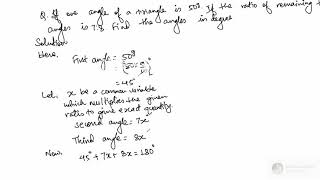 Q. If one angle of a triangle is 50g. If the ratio of remaining t
angles is 7:8 Find the angles in degree
Solution
Here,
First angle = 50g
= 45°
Let, x be a common variable
which multiples the given
ratios to give exact quantity.
second angle = 7x°
Third angle = 8x°
Now, 45° + 7x + 8x = 180°